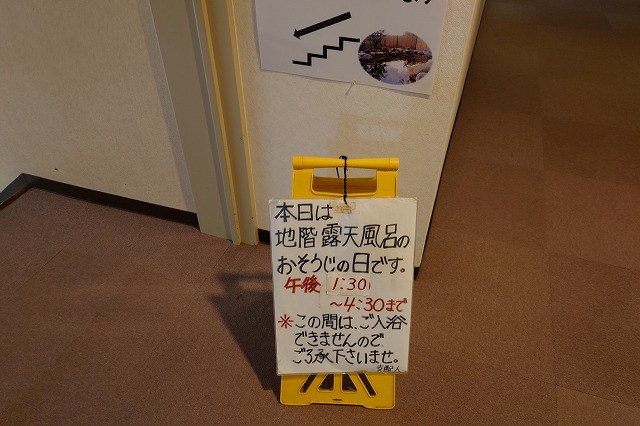 本日は
地階露天風呂の
おそうじの日です。
午後 1:30
～4:30まで
※この間は、ご入浴
できませんので、
ご了承下さいませ。
支配人